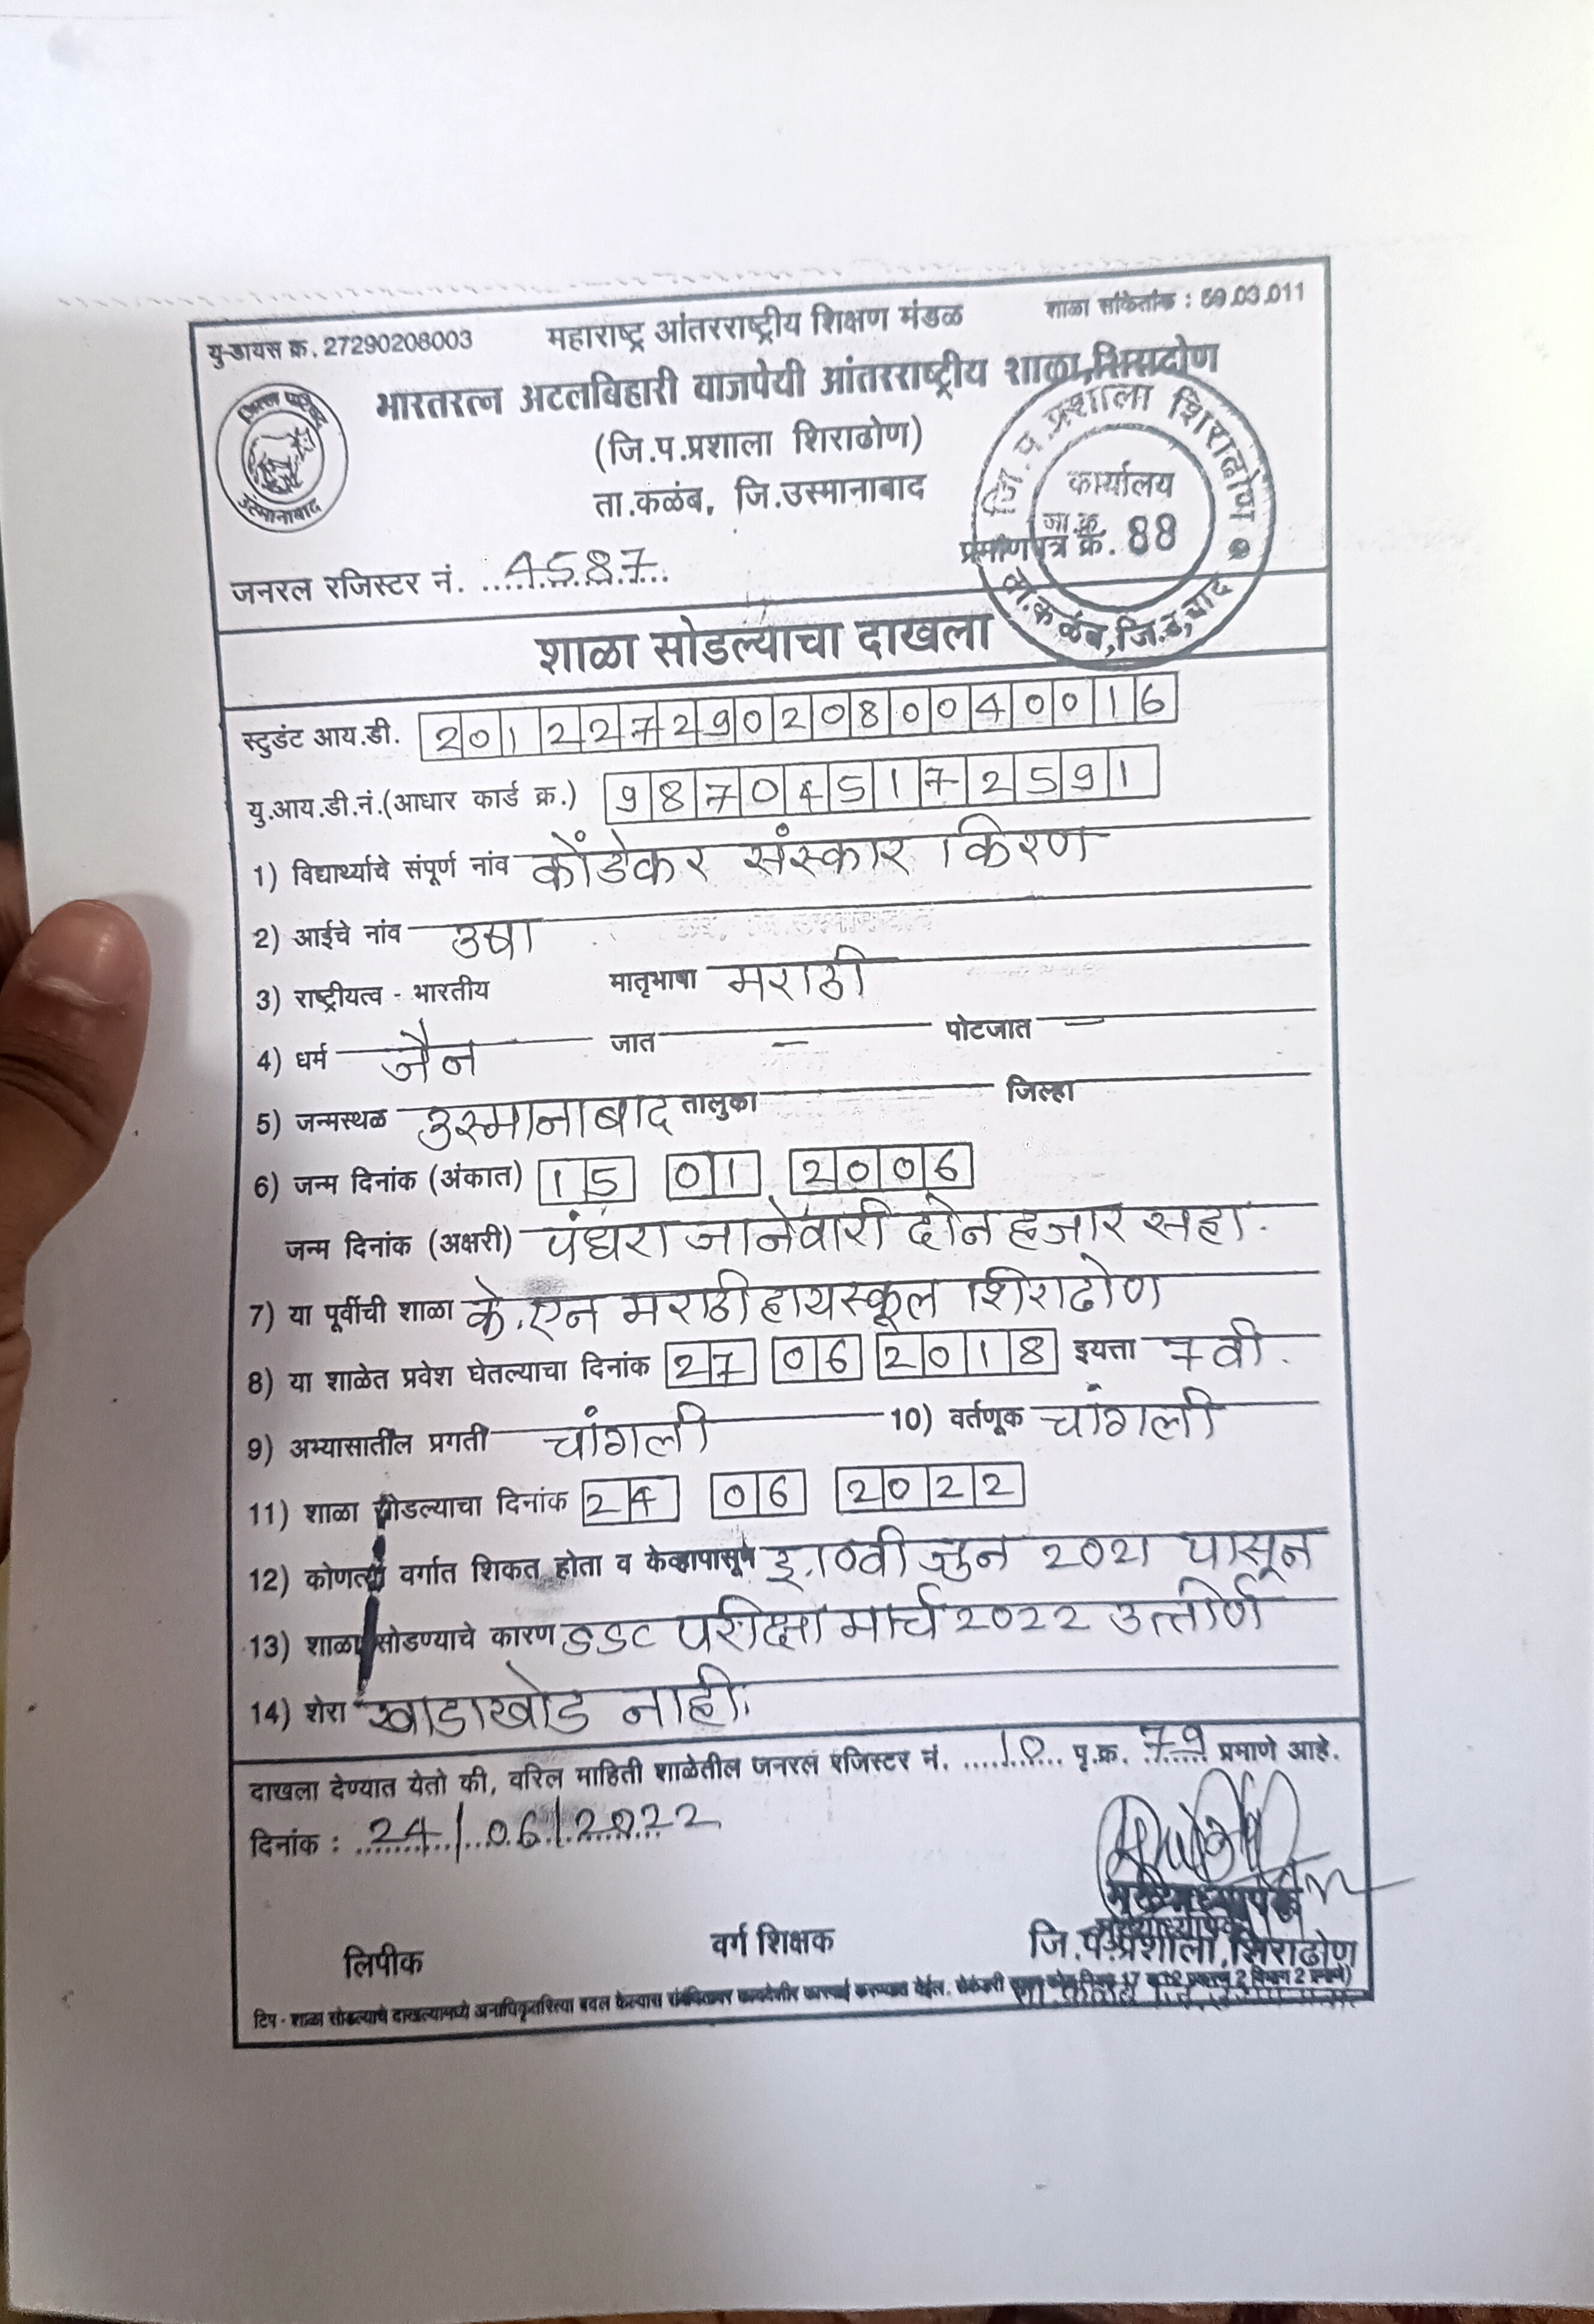 यु-डायस क्र. 27290208003
महाराष्ट्र आंतरराष्ट्रीय शिक्षण मंडळ
शाळा सांकेतांक : 59.03.011
भारतरत्न अटलबिहारी वाजपेयी आंतरराष्ट्रीय शाळा,शिराढोण
(जि.प.प्रशाला शिराढोण)
ता.कळंब, जि.उस्मानाबाद
उस्मानाबाद
जि.प.प्रशाला शिराढोण
कार्यालय
जा.क्र.
प्रमाणपत्र क्रं. 88
जनरल रजिस्टर नं. 4587
शाळा सोडल्याचा दाखला
स्टुडंट आय.डी. 2012272902080040016
यु.आय.डी.नं.(आधार कार्ड क्र.) 987045172591
1) विद्यार्थ्याचे संपूर्ण नांव कोंडेकर संस्कार किरण
2) आईचे नांव उषा
3) राष्ट्रीयत्व - भारतीय मातृभाषा मराठी
4) धर्म जैन जात — पोटजात —
5) जन्मस्थळ उस्मानाबाद तालुका जिल्हा
6) जन्म दिनांक (अंकात) 15 01 2006
जन्म दिनांक (अक्षरी) पंधरा जानेवारी दोन हजार सहा.
7) या पूर्वीची शाळा के.एन मराठी हायस्कूल शिराढोण
8) या शाळेत प्रवेश घेतल्याचा दिनांक 27 06 2018 इयत्ता 7 वी.
9) अभ्यासातील प्रगती चांगली 10) वर्तणूक चांगली
11) शाळा सोडल्याचा दिनांक 24 06 2022
12) कोणत्या वर्गात शिकत होता व केव्हापासून इ.10वी जुन 2021 पासून
13) शाळा सोडण्याचे कारण SSC परीक्षा मार्च 2022 उत्तीर्ण
14) शेरा खाडाखोड नाही.
दाखला देण्यात येतो की, वरिल माहिती शाळेतील जनरल रजिस्टर नं. 10 पृ.क्र. 79 प्रमाणे आहे.
दिनांक : 24/06/2022
मुख्याध्यापक
लिपीक वर्ग शिक्षक जि.प.प्रशाला,शिराढोण
टिप - शाळा सोडल्याचे दाखल्यामध्ये अनाधिकृतरित्या बदल केल्यास संबंधितावर कायदेशीर कारवाई करण्यात येईल.